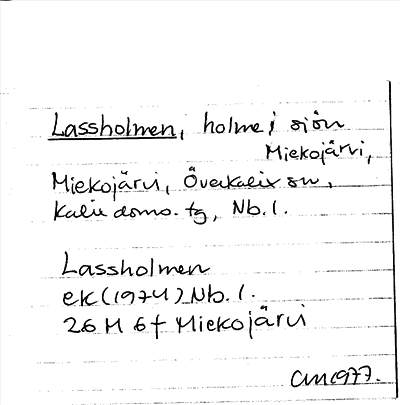 Lassholmen, holme i sjön
Miekojärvi,
Miekojärvi, Överkalix sn,
Kalix doms. tg, Nb. l.
Lassholmen
ek (1974) Nb. l.
26 M 6 f Miekojärvi
1977.